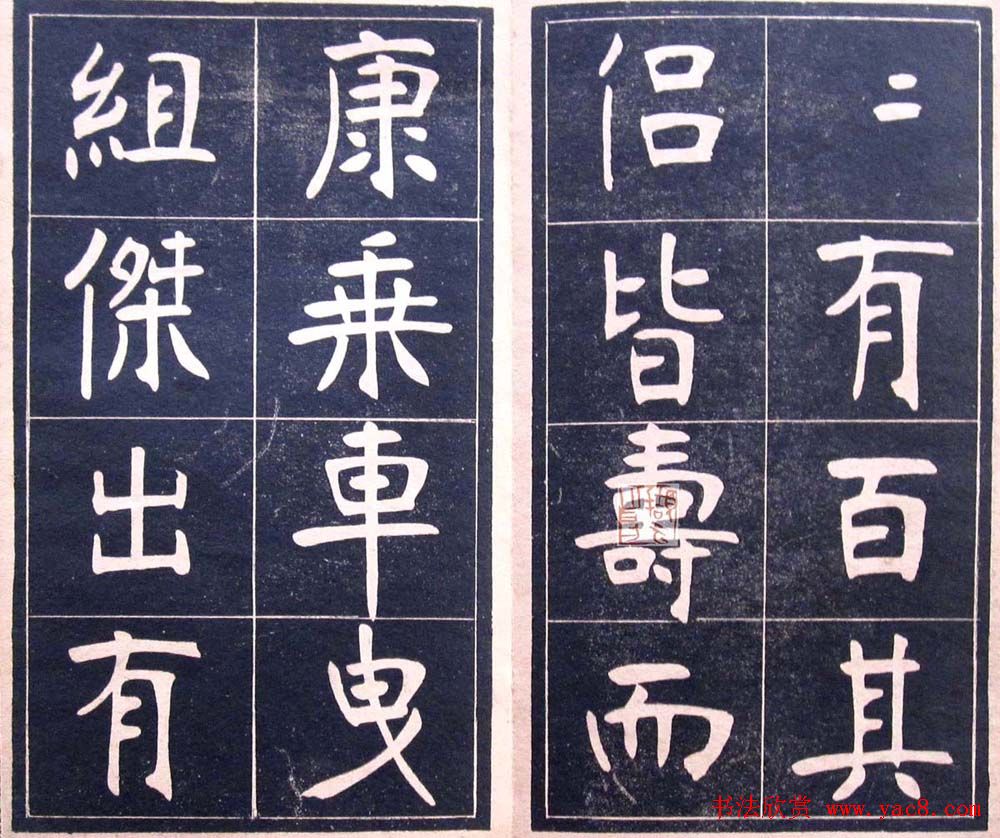 〻有百其
侣皆壽而
康乗車曳
組傑出有
书法欣赏 www.yac8.com